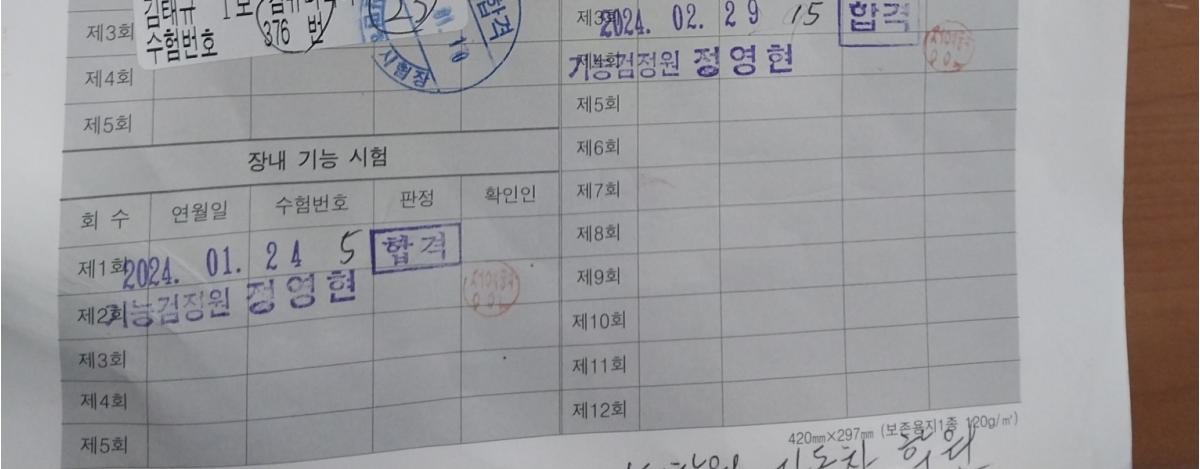 김태규 1보
수험번호 376 번
23
합격
10
시험장
제3회
제4회
제5회
장내 기능 시험
회 수 연월일 수험번호 판정 확인인
제1회 2024. 01. 24 5 합격
제2회 기능검정원 정영현
제3회
제4회
제5회
제3회 2024. 02. 29 15 합격
제4회 기능검정원 정영현
제5회
제6회
제7회
제8회
제9회
제10회
제11회
제12회
420㎜×297㎜ (보존용지1종 120g/㎡)